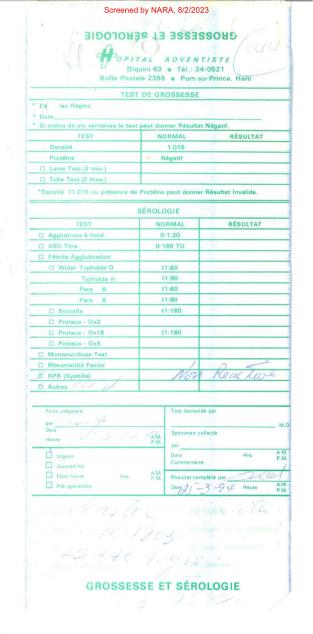 Screened by NARA, 8/2/2023
GROSSESSE ET SÉROLOGIE
HOPITAL ADVENTISTE
Diquini 63 • Tél.: 34-0521
Boîte Postale 2355 • Port-au-Prince, Haiti
TEST DE GROSSESSE
* Date
* Si moins de six semaines le test peut donner Résultat Négatif.
TEST NORMAL RÉSULTAT
Densité 1.015
Protéine Négatif
☐ Lame Test (2 min.)
☐ Tube Test (2 hres.)
*Densité /1.015 ou présence de Protéine peut donner Résultat Invalide.
SÉROLOGIE
TEST NORMAL RÉSULTAT
☐ Agglutinine à froid 0-1:20
☐ ASO Titre 0-166 TU
☐ Fébrile Agglutination
☐ Widal Typhoïde O /1:80
Typhoïde H /1:80
Para A /1:80
Para B /1:80
☐ Brucella /1:160
☐ Proteus - Ox2
☐ Proteus - Ox19 /1:160
☐ Proteus - OxK
☐ Mononucléose Test
☐ Rheumatoid Factor
☐ RPR (Syphilis) Non Reactive
☐ Autres
Fiche préparée
par
Date
Heure A.M. P.M.
☐ Urgent
☐ Aujourd'hui
☐ Date heure Hre. A.M. P.M.
☐ Pré-opératoire
Test demandé par
M.D.
Spécimen collecté
par
Date Hre. A.M. P.M.
Commentaire
Résultat complété par
Date 21-3-94 Heure A.M. P.M.
GROSSESSE ET SÉROLOGIE